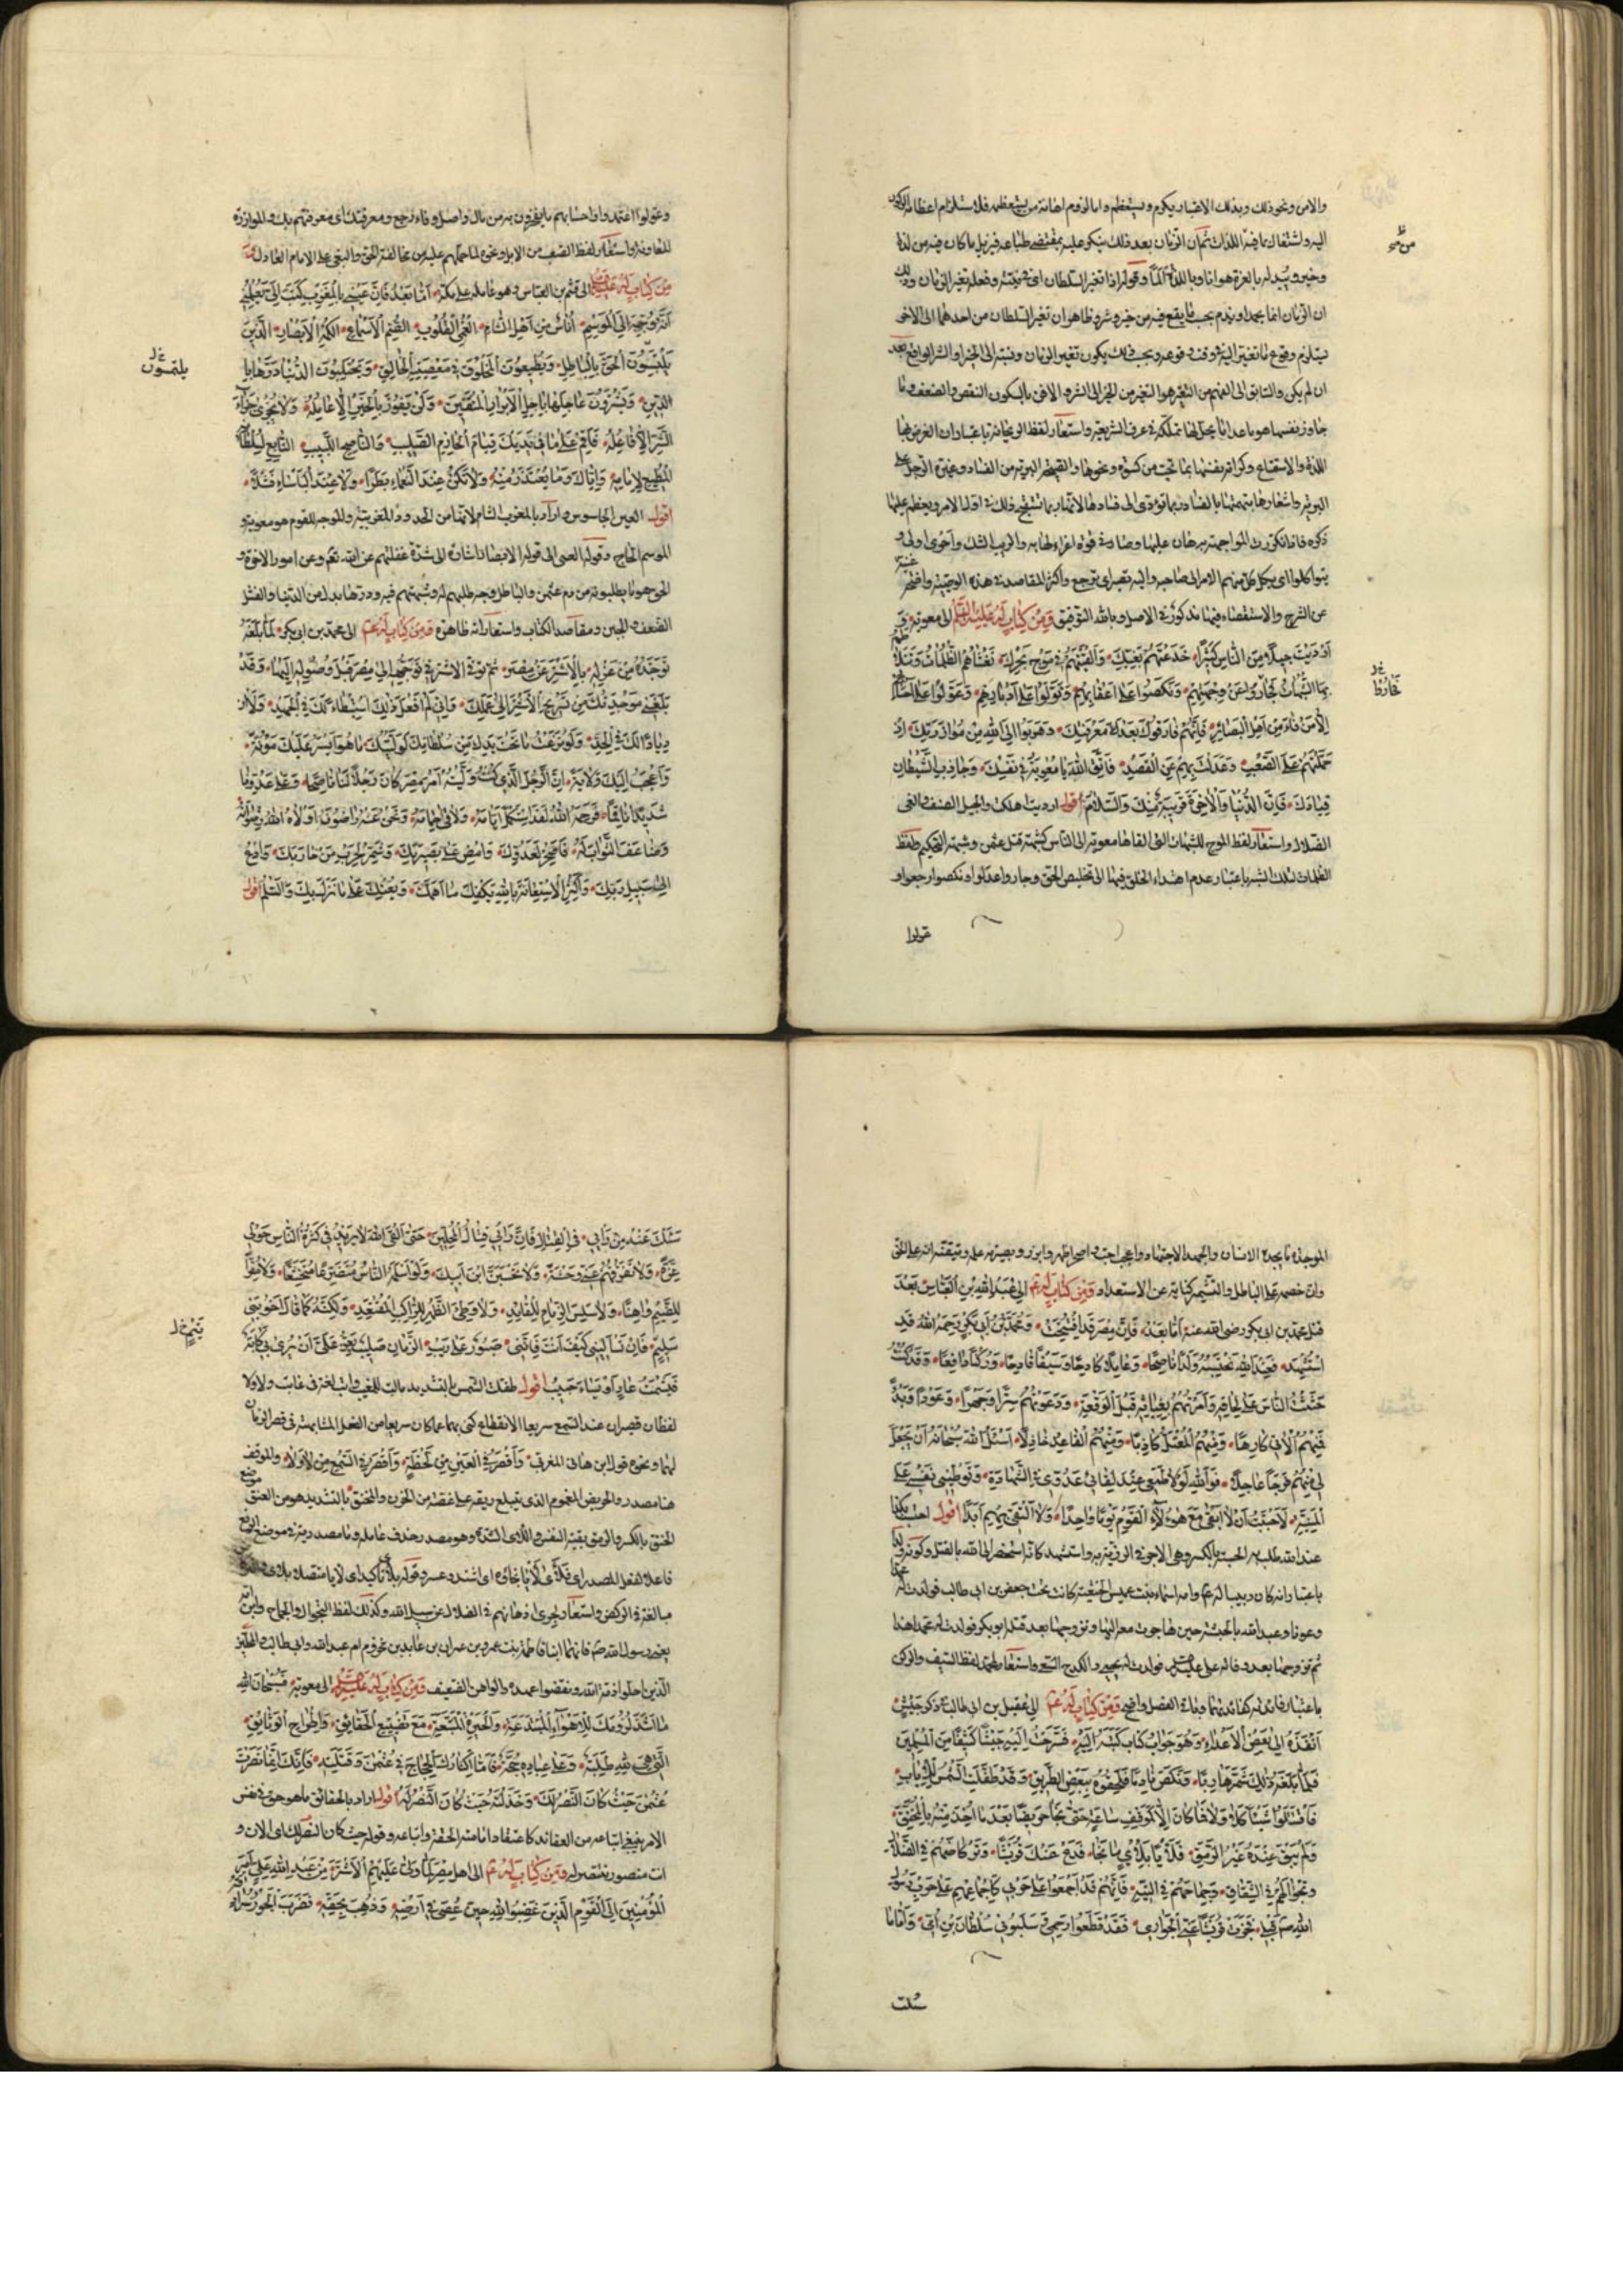 والامن ونحو ذلك وبذلك الاعتبار يكرم ويستعظم واما لزوم اهانة من يستعظمه فلاستلزام اعظامه الركون
اليه واشتغاله بما فيه من اللذات ثم ان الزمان بعد ذلك ينكر عليه بمقتضى طباعه فيزيل ما كان فيه من لذة
وخير ويبدله بالعزة هوانا وباللذة ألما وقوله اذا تغير السلطان اي في نيته وفعله تغير الزمان وذلك
ان الزمان انما يحمد او يذم بحسب ما يقع فيه من خير وشر وظاهر ان تغير السلطان من احدهما الى الاخر
يستلزم وقوع ما تغير اليه فوقت وقوعه وبحسب ذلك يكون تغير الزمان ونسبته الى الخير او الشر الواقع بعد
ان لم يكن والسابق الى الفهم من التغير هو التغير من الخير الى الشر والافن بالسكون النقص والضعف وما
جاوز نفسها هو ما عدا ما يحل لها تملكه في عرف الشريعة واستعار لفظ الريحانة باعتبار ان الغرض منها
اللذة والاستمتاع
ذكره فاذا تكررت المواجهة به هان عليها وصار في قوة اغراء لها به والريب الشك وأحرى اولى و
يتواكلوا اي يكل كل منهم الامر الى صاحبه واليه تصير اي ترجع واكثر المقاصد في هذه الوصية واضح
عن الشرح والاستقصاء فيها مذكور في الاصل وبالله التوفيق وَمِنْ كِتَابٍ لَهُ عَلَيْهِ السَّلَامُ الى معوية
أَرْدَيْتَ جِيلًا مِنَ النَّاسِ كَثِيرًا خَدَعْتَهُمْ بِغَيِّكَ وَأَلْقَيْتَهُمْ فِي مَوْجِ بَحْرِكَ تَغْشَاهُمُ الظُّلُمَاتُ وَتَتَلَاطَمُ
بِهِمُ الشُّبُهَاتُ فَجَارُوا عَنْ وِجْهَتِهِمْ وَنَكَصُوا عَلَى أَعْقَابِهِمْ وَتَوَلَّوْا عَلَى أَدْبَارِهِمْ وَعَوَّلُوا عَلَى أَحْسَابِهِمْ
إِلَّا مَنْ فَاءَ مِنْ أَهْلِ الْبَصَائِرِ فَإِنَّهُمْ فَارَقُوكَ بَعْدَ مَعْرِفَتِكَ وَهَرَبُوا إِلَى اللهِ مِنْ مُوَازَرَتِكَ إِذْ
حَمَلْتَهُمْ عَلَى الصَّعْبِ وَعَدَلْتَ بِهِمْ عَنِ الْقَصْدِ فَاتَّقِ اللهَ يَا مُعَوِيَةُ فِي نَفْسِكَ وَجَاذِبِ الشَّيْطَانَ
قِيَادَكَ فَإِنَّ الدُّنْيَا وَالْآخِرَةَ قَرِيبَةٌ مِنْكَ وَالسَّلَامُ اقول ارديت اهلكت والجيل الصنف والغي
الضلال واستعار لفظ الموج للشبهات التي القاها معوية الى الناس كشبهة قتل عثمن وشبهة التحكيم ولفظ
الظلمات لتلك الشبه باعتبار عدم اهتداء الخلق فيها الى تخليص الحق وجاروا عدلوا ونكصوا رجعوا و
عولوا
وعولوا اعتمدوا واحسابهم ما يفخرون به من مال واصل وفاء رجع ومعرفتك اى معرفتهم بك والموازرة
المعاونة واستعار لفظ الصعب من الابل ونحوه لما حملهم عليه من مخالفة الحق والبغى على الامام العادل
مِنْ كِتَابٍ لَهُ عَلَيْهِ السَّلَامُ الى قثم بن العباس وهو عامله على مكة أَمَّا بَعْدُ فَإِنَّ عَيْنِي بِالْمَغْرِبِ كَتَبَ إِلَيَّ يُعْلِمُنِي
أَنَّهُ وُجِّهَ إِلَى الْمَوْسِمِ أُنَاسٌ مِنْ أَهْلِ الشَّامِ الْعُمْيِ الْقُلُوبِ الصُّمِّ الْأَسْمَاعِ الْكُمْهِ الْأَبْصَارِ الَّذِينَ
يَلْبِسُونَ الْحَقَّ بِالْبَاطِلِ وَيُطِيعُونَ الْمَخْلُوقَ فِي مَعْصِيَةِ الْخَالِقِ وَيَحْتَلِبُونَ الدُّنْيَا دَرَّهَا بِ
الدِّينِ وَيَشْتَرُونَ عَاجِلَهَا بِآجِلِ الْأَبْرَارِ الْمُتَّقِينَ وَلَنْ يَفُوزَ بِالْخَيْرِ إِلَّا عَامِلُهُ وَلَا يُجْزَى جَزَاءَ
الشَّرِّ إِلَّا فَاعِلُهُ فَأَقِمْ عَلَى مَا فِي يَدَيْكَ قِيَامَ الْحَازِمِ الصَّلِيبِ وَالنَّاصِحِ اللَّبِيبِ التَّابِعِ لِسُلْطَانِهِ
الْمُطِيعِ لِإِمَامِهِ وَإِيَّاكَ وَمَا يُعْتَذَرُ مِنْهُ وَلَا تَكُنْ عِنْدَ النَّعْمَاءِ بَطِرًا وَلَا عِنْدَ الْبَأْسَاءِ فَشِلًا
اقول العين الجاسوس واراد بالمغرب الشام لانها من الحدود المغربية والموجه للقوم هو معوية و
الموسم الحاج وقوله العمى الى قوله الابصار اشارة الى شدة غفلتهم عن الله تعم وعن امور الاخرة و
الحق هو ما يطلبونه من دم عثمن والباطل وجه طلبهم له وشبهتهم فيه ودرها بدل من الدنيا والفشل
الضعف والجبن ومقاصد الكتاب واستعاراته ظاهرة وَمِنْ كِتَابٍ لَهُ ع الى محمد بن ابى بكر لَمَّا بَلَغَهُ
تَوَجُّدُهُ مِنْ عَزْلِهِ بِالْأَشْتَرِ عَنْ مِصْرَ ثُمَّ تُوُفِّيَ الْأَشْتَرُ فِي تَوَجُّهِهِ إِلَى مِصْرَ قَبْلَ وُصُولِهِ إِلَيْهَا وَقَدْ
بَلَغَنِي مَوْجِدَتُكَ مِنْ تَسْرِيحِ الْأَشْتَرِ إِلَى عَمَلِكَ وَإِنِّي لَمْ أَفْعَلْ ذَلِكَ اسْتِبْطَاءً لَكَ فِي الْجَهْدِ وَلَا ازْ
دِيَادًا لَكَ فِي الْجِدِّ وَلَوْ نَزَعْتُ مَا تَحْتَ يَدِكَ مِنْ سُلْطَانِكَ لَوَلَّيْتُكَ مَا هُوَ أَيْسَرُ عَلَيْكَ مَؤُنَةً
وَأَعْجَبُ إِلَيْكَ وِلَايَةً إِنَّ الرَّجُلَ الَّذِي كُنْتُ وَلَّيْتُهُ أَمْرَ مِصْرَ كَانَ رَجُلًا لَنَا نَاصِحًا وَعَلَى عَدُوِّنَا
شَدِيدًا نَاقِمًا فَرَحِمَهُ اللهُ فَلَقَدِ اسْتَكْمَلَ أَيَّامَهُ وَلَاقَى حِمَامَهُ وَنَحْنُ عَنْهُ رَاضُونَ أَوْلَاهُ اللهُ رِضْوَانَهُ
وَضَاعَفَ الثَّوَابَ لَهُ فَأَصْحِرْ لِعَدُوِّكَ وَامْضِ عَلَى بَصِيرَتِكَ وَشَمِّرْ لِحَرْبِ مَنْ حَارَبَكَ وَادْعُ
إِلَى سَبِيلِ رَبِّكَ وَأَكْثِرِ الْاِسْتِعَانَةَ بِاللهِ يَكْفِكَ مَا أَهَمَّكَ وَيُعِنْكَ عَلَى مَا نَزَلَ بِكَ وَالسَّلَمُ اقول
يلتمسون
الموجدة ما يجده الانسان والجهد الاجتهاد واعجب احب واصحر اظهر وابرز وبصيرته علمه وتيقنه انه على الحق
وان خصمه على الباطل والتشمير كناية عن الاستعداد وَمِنْ كِتَابٍ لَهُ ع إِلَى عَبْدِ اللهِ بْنِ الْعَبَّاسِ بَعْدَ
قتل محمد بن ابى بكر رضى الله عنه أَمَّا بَعْدُ فَإِنَّ مِصْرَ قَدِ افْتُتِحَتْ وَمُحَمَّدُ بْنُ أَبِي بَكْرٍ رَحِمَهُ اللهُ قَدِ
اسْتُشْهِدَ فَعِنْدَ اللهِ نَحْتَسِبُهُ وَلَدًا نَاصِحًا وَعَامِلًا كَادِحًا وَسَيْفًا قَاطِعًا وَرُكْنًا دَافِعًا وَقَدْ كُنْتُ
حَثَثْتُ النَّاسَ عَلَى لِحَاقِهِ وَأَمَرْتُهُمْ بِغِيَاثِهِ قَبْلَ الْوَقْعَةِ وَدَعَوْتُهُمْ سِرًّا وَجَهْرًا وَعَوْدًا وَبَدْءًا
فَمِنْهُمُ الْآتِي كَارِهًا وَمِنْهُمُ الْمُعْتَلُّ كَاذِبًا وَمِنْهُمُ الْقَاعِدُ خَاذِلًا أَسْئَلُ اللهَ سُبْحَانَهُ أَنْ يَجْعَلَ
لِي مِنْهُمْ فَرَجًا عَاجِلًا فَوَاللهِ لَوْلَا طَمَعِي عِنْدَ لِقَائِي عَدُوِّي فِي الشَّهَادَةِ وَتَوْطِينِي نَفْسِي عَلَى
الْمَنِيَّةِ لَأَحْبَبْتُ أَنْ لَا أَبْقَى مَعَ هَؤُلَاءِ الْقَوْمِ يَوْمًا وَاحِدًا وَلَا أَلْتَقِيَ بِهِمْ أَبَدًا اقول احتسب بكذا
عند الله طلب به الحسبة بالكسر وهى الاجر واستشهد كانه استحضر الى الله بالقتل وكونه ولدا
باعتبار انه كان ربيبا له ع وامه اسماء بنت عميس الخثعمية كانت تحت جعفر بن ابى طالب فولدت له محمدا
وعونا وعبد الله بالحبشة حين هاجرت معه اليها وتزوجها بعد قتله ابو بكر فولدت له محمدا هذا
ثم تزوجها بعد وفاته على عليه السلام فولدت له يحيى والكدح السعى واستعار لمحمد لفظ السيف والركن
باعتبار وباقى الفصل واضح وَمِنْ كِتَابٍ لَهُ ع إلى عقيل بن ابى طالب فى ذكر جَيْشٍ
أَنْفَذَهُ إِلَى بَعْضِ الْأَعْدَاءِ وَهُوَ جَوَابُ كِتَابٍ كَتَبَهُ إِلَيْهِ فَسَرَّحْتُ إِلَيْهِ جَيْشًا كَثِيفًا مِنَ الْمُسْلِمِينَ
فَلَمَّا بَلَغَهُ ذَلِكَ شَمَّرَ هَارِبًا وَنَكَصَ نَادِمًا فَلَحِقُوهُ بِبَعْضِ الطَّرِيقِ وَقَدْ طَفَّلَتِ الشَّمْسُ لِلْإِيَابِ
فَاقْتَتَلُوا شَيْئًا كَلَا وَلَا فَمَا كَانَ إِلَّا كَمَوْقِفِ سَاعَةٍ حَتَّى نَجَا جَرِيضًا بَعْدَ مَا أُخِذَ مِنْهُ بِالْمُخَنَّقِ
وَلَمْ يَبْقَ عِنْدَهُ غَيْرُ الرَّمَقِ فَلَأْيًا بِلَأْيٍ مَا نَجَا فَدَعْ عَنْكَ قُرَيْشًا وَتَرْكَاضَهُمْ فِي الضَّلَالِ
وَتَجْوَالَهُمْ فِي الشِّقَاقِ وَجِمَاحَهُمْ فِي التِّيهِ فَإِنَّهُمْ قَدْ أَجْمَعُوا عَلَى حَرْبِي كَإِجْمَاعِهِمْ عَلَى حَرْبِ رَسُولِ
اللهِ ص قَبْلِي فَجَزَتْ قُرَيْشًا عَنِّي الْجَوَازِي فَقَدْ قَطَعُوا رَحِمِي وَسَلَبُونِي سُلْطَانَ ابْنِ أُمِّي وَأَمَّا مَا
سئلت
سَئَلْتَ عَنْهُ مِنْ رَأْيِي فِي الْقِتَالِ فَإِنَّ رَأْيِي قِتَالُ الْمُحِلِّينَ حَتَّى أَلْقَى اللهَ لَا يَزِيدُنِي كَثْرَةُ النَّاسِ حَوْلِي
عِزَّةً وَلَا تَفَرُّقُهُمْ عَنِّي وَحْشَةً وَلَا تَحْسَبَنَّ ابْنَ أَبِيكَ وَلَوْ أَسْلَمَهُ النَّاسُ مُتَضَرِّعًا مُتَخَشِّعًا وَلَا مُقِرًّا
لِلضَّيْمِ وَاهِنًا وَلَا سَلِسَ الزِّمَامِ لِلْقَائِدِ وَلَا وَطِئَ الظَّهْرِ لِلرَّاكِبِ الْمُقْتَعِدِ وَلَكِنَّهُ كَمَا قَالَ أَخُو بَنِي
سُلَيْمٍ فَإِنْ تَسْأَلِينِي كَيْفَ أَنْتَ فَإِنَّنِي صَبُورٌ عَلَى رَيْبِ الزَّمَانِ صَلِيبُ يَعِزُّ عَلَيَّ أَنْ يُرَى بِي كَآبَةٌ
فَيَشْمَتَ عَادٍ أَوْ يُسَاءَ حَبِيبُ اقول طفلت الشمس بالتشديد مالت للمغيب وآبت لغة فى غابت ولا ولا
لفظان قصيران عند السمع سريعا الانقطاع كنى بهما عما كان سريعا من الفعل المشابهة فى قصر الزمان
لهما ونحوه قول ابن هانى المغربى وَأَقْصَرُ فِي الْعَيْنِ مِنْ لَحْظَةٍ وَأَقْصَرُ فِي السَّمْعِ مِنْ لَا وَلَا والموقف
هنا مصدر والجريض المغموم الذى يبتلع ريقه على غصة من الحزن والمخنق بالتشديد هو من العنق موضع
الخنق بالكسر والرمق بقية النفس واللأى الشدة وهو مصدر حذف عامله وما مصدرية فى موضع الرفع
مبالغة فى الركض واستعار لجرى اذهانهم فى الضلال عن سبيل الله وكذلك لفظ التجوال والجماح وابن امه
يعنى رسول الله ص فانهما ابنا فاطمة بنت عمرو بن عمران بن عابد بن مخزوم ام عبد الله وابى طالب والمحلين
الذين احلوا ذمة الله ونقضوا عهده والواهن الضعيف وَمِنْ كِتَابٍ لَهُ عليه السلام الى معوية فَسُبْحَانَ اللهِ
مَا أَشَدَّ لُزُومَكَ لِلْأَهْوَاءِ الْمُبْتَدَعَةِ وَالْحَيْرَةِ الْمُتَّبَعَةِ مَعَ تَضْيِيعِ الْحَقَائِقِ وَاطِّرَاحِ الْوَثَائِقِ
الَّتِي هِيَ لِلهِ طَلِبَةٌ وَعَلَى عِبَادِهِ حُجَّةٌ فَأَمَّا إِكْثَارُكَ الْحِجَاجَ فِي عُثْمَنَ وَقَتَلَتِهِ فَإِنَّكَ إِنَّمَا نَصَرْتَ
عُثْمَنَ حَيْثُ كَانَ النَّصْرُ لَكَ وَخَذَلْتَهُ حَيْثُ كَانَ النَّصْرُ لَهُ اقول اراد بالحقائق ما هو حق فى نفس
الامر ينبغى اتباعه من العقائد كاعتقاد امامته الحقة واتباعه وقوله حيث كان النصر لك اى الان و
انت منصور بنصر له وَمِنْ كِتَابٍ لَهُ ع الى اهل مصر لَمَّا وَلَّى عَلَيْهِمُ الْأَشْتَرَ مِنْ عَبْدِ اللهِ عَلِيٍّ أَمِيرِ
الْمُؤْمِنِينَ إِلَى الْقَوْمِ الَّذِينَ غَضِبُوا لِلهِ حِينَ عُصِيَ فِي أَرْضِهِ وَذُهِبَ بِحَقِّهِ فَضَرَبَ الْجَوْرُ سُرَادِقَهُ